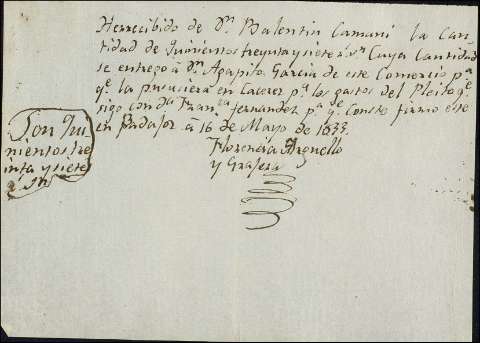 He rrecibido de Dn. Balentin Camani la Can-
tidad de Quinientos treynta y siete rs. vn Cuya Cantidad
se entrego à Dn. Agapito Garcia de este Comercio pa.
qe. la pususiera en Caceres pa. los gastos del Pleito qe.
sigo con Da. Franca. fernandez pa. qe. Conste firmo este
en Badajoz à 16 de Mayo de 1833.
Florencia Arguello
y Grajera
Son Qui
nientos tre
inta y siete
rs. vn